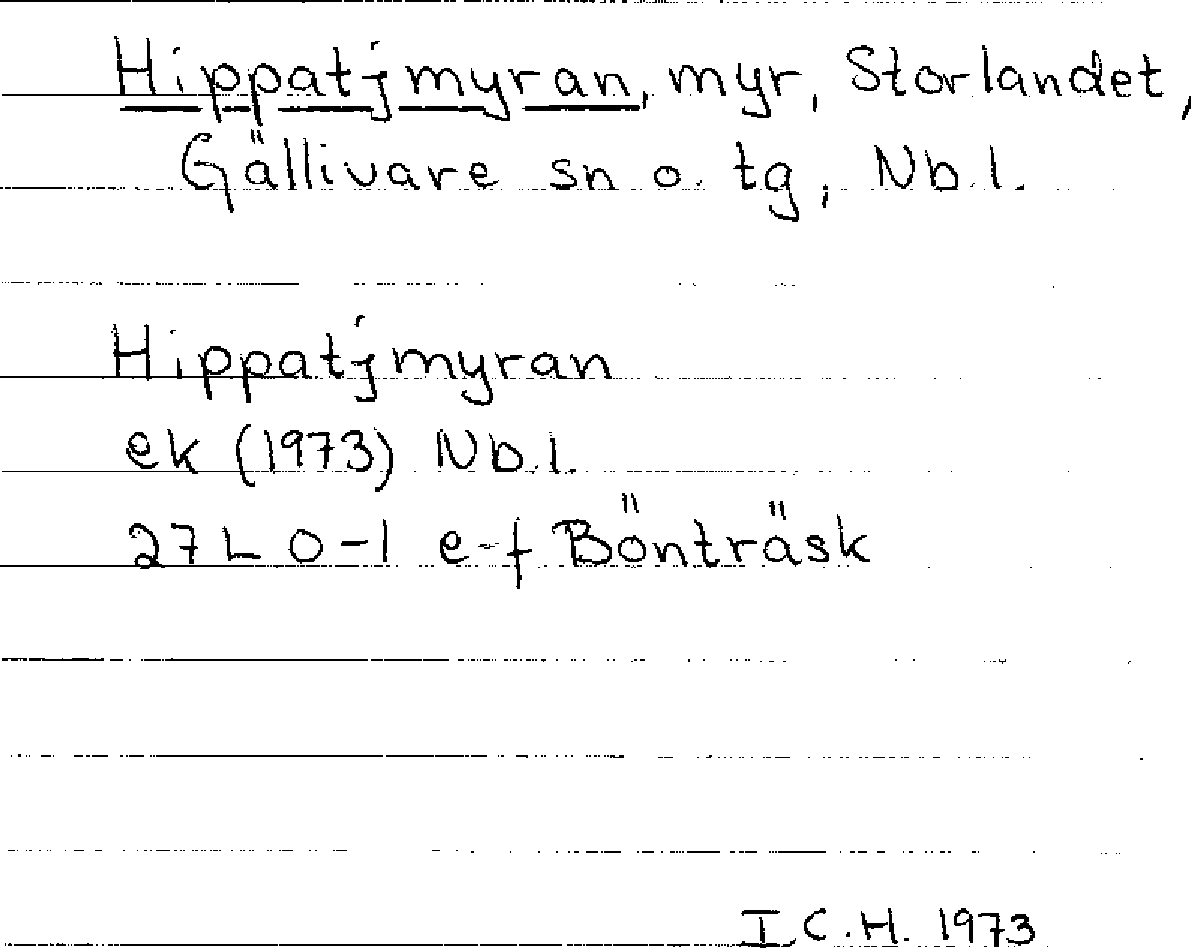 Hippatjmyran, myr, Storlandet,
Gällivare sn o. tg, Nb.l.
Hippatjmyran
ek (1973) Nb.l.
27L 0-1 e-f Bönträsk
I.C.H. 1973